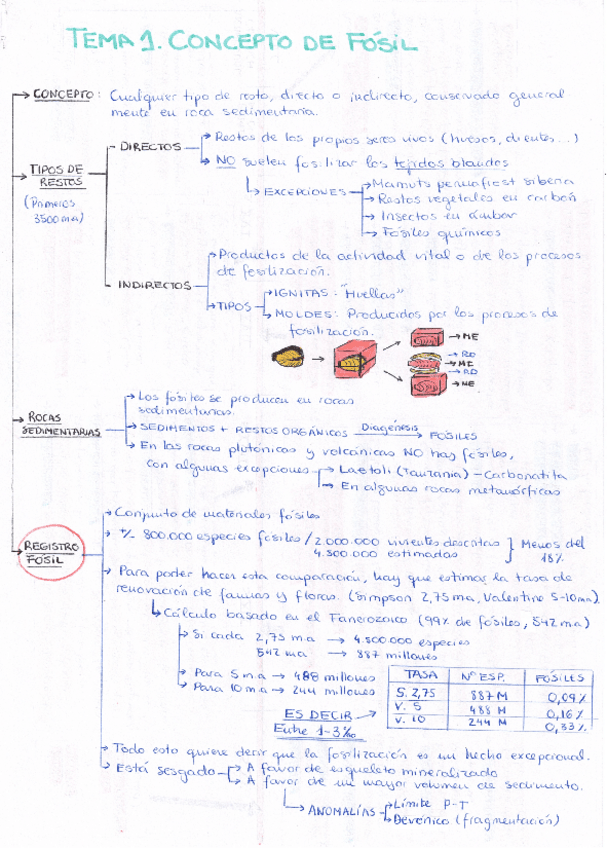 TEMA 1. CONCEPTO DE FÓSIL
CONCEPTO: Cualquier tipo de resto, directo o indirecto, conservado general
mente en roca sedimentaria.
TIPOS DE
RESTOS
(Primeros
3500 ma)
DIRECTOS
Restos de los propios seres vivos (huesos, dientes...)
NO suelen fosilizar los tejidos blandos
EXCEPCIONES
Mamuts permafrost siberia
Restos vegetales en carbón
Insectos en ámbar
Fósiles químicos
INDIRECTOS
Productos de la actividad vital o de los procesos
de fosilización.
TIPOS
IGNITAS: "Huellas"
MOLDES: Producidos por los procesos de
fosilización.
ME
RD
MI
RD
ME
ROCAS
SEDIMENTARIAS
Los fósiles se producen en rocas
sedimentarias.
SEDIMENTOS + RESTOS ORGÁNICOS Diagénesis FÓSILES
En las rocas plutónicas y volcánicas NO hay fósiles,
con algunas excepciones
Laetoli (Tanzania) - Carbonatita
En algunas rocas metamórficas
REGISTRO
FÓSIL
Conjunto de materiales fósiles
+/- 800.000 especies fósiles / 2.000.000 vivientes descritas
4.500.000 estimadas
Menos del
18%
Para poder hacer esta comparación, hay que estimar la tasa de
renovación de faunas y floras. (Simpson 2,75 ma, Valentine 5-10 ma).
Cálculo basado en el Fanerozoico (99% de fósiles, 542 ma)
Si cada 2,75 m.a → 4.500.000 especies
542 ma → 887 millones
Para 5 m.a → 488 millones
Para 10 m.a → 244 millones
ES DECIR
Entre 1-3‰
TASA Nº ESP. FÓSILES
S. 2,75 887 M 0,09%
V. 5 488 M 0,16%
V. 10 244 M 0,33%
Todo esto quiere decir que la fosilización es un hecho excepcional.
Está sesgado
A favor de esqueleto mineralizado
A favor de un mayor volumen de sedimento.
ANOMALÍAS
Límite P-T
Devónico (fragmentación)